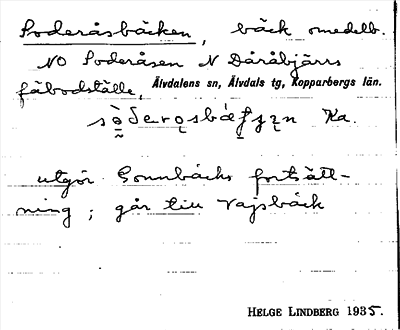 Soderåsbäcken, bäck omedelb.
NO Soderåsen N Dåråbjärs
fäbodställe, Älvdalens sn, Älvdals tg, Kopparbergs län.
Ka.
utgör Sonnbäcks fortsätt-
ning; går till Vajsbäck
HELGE LINDBERG 1935.